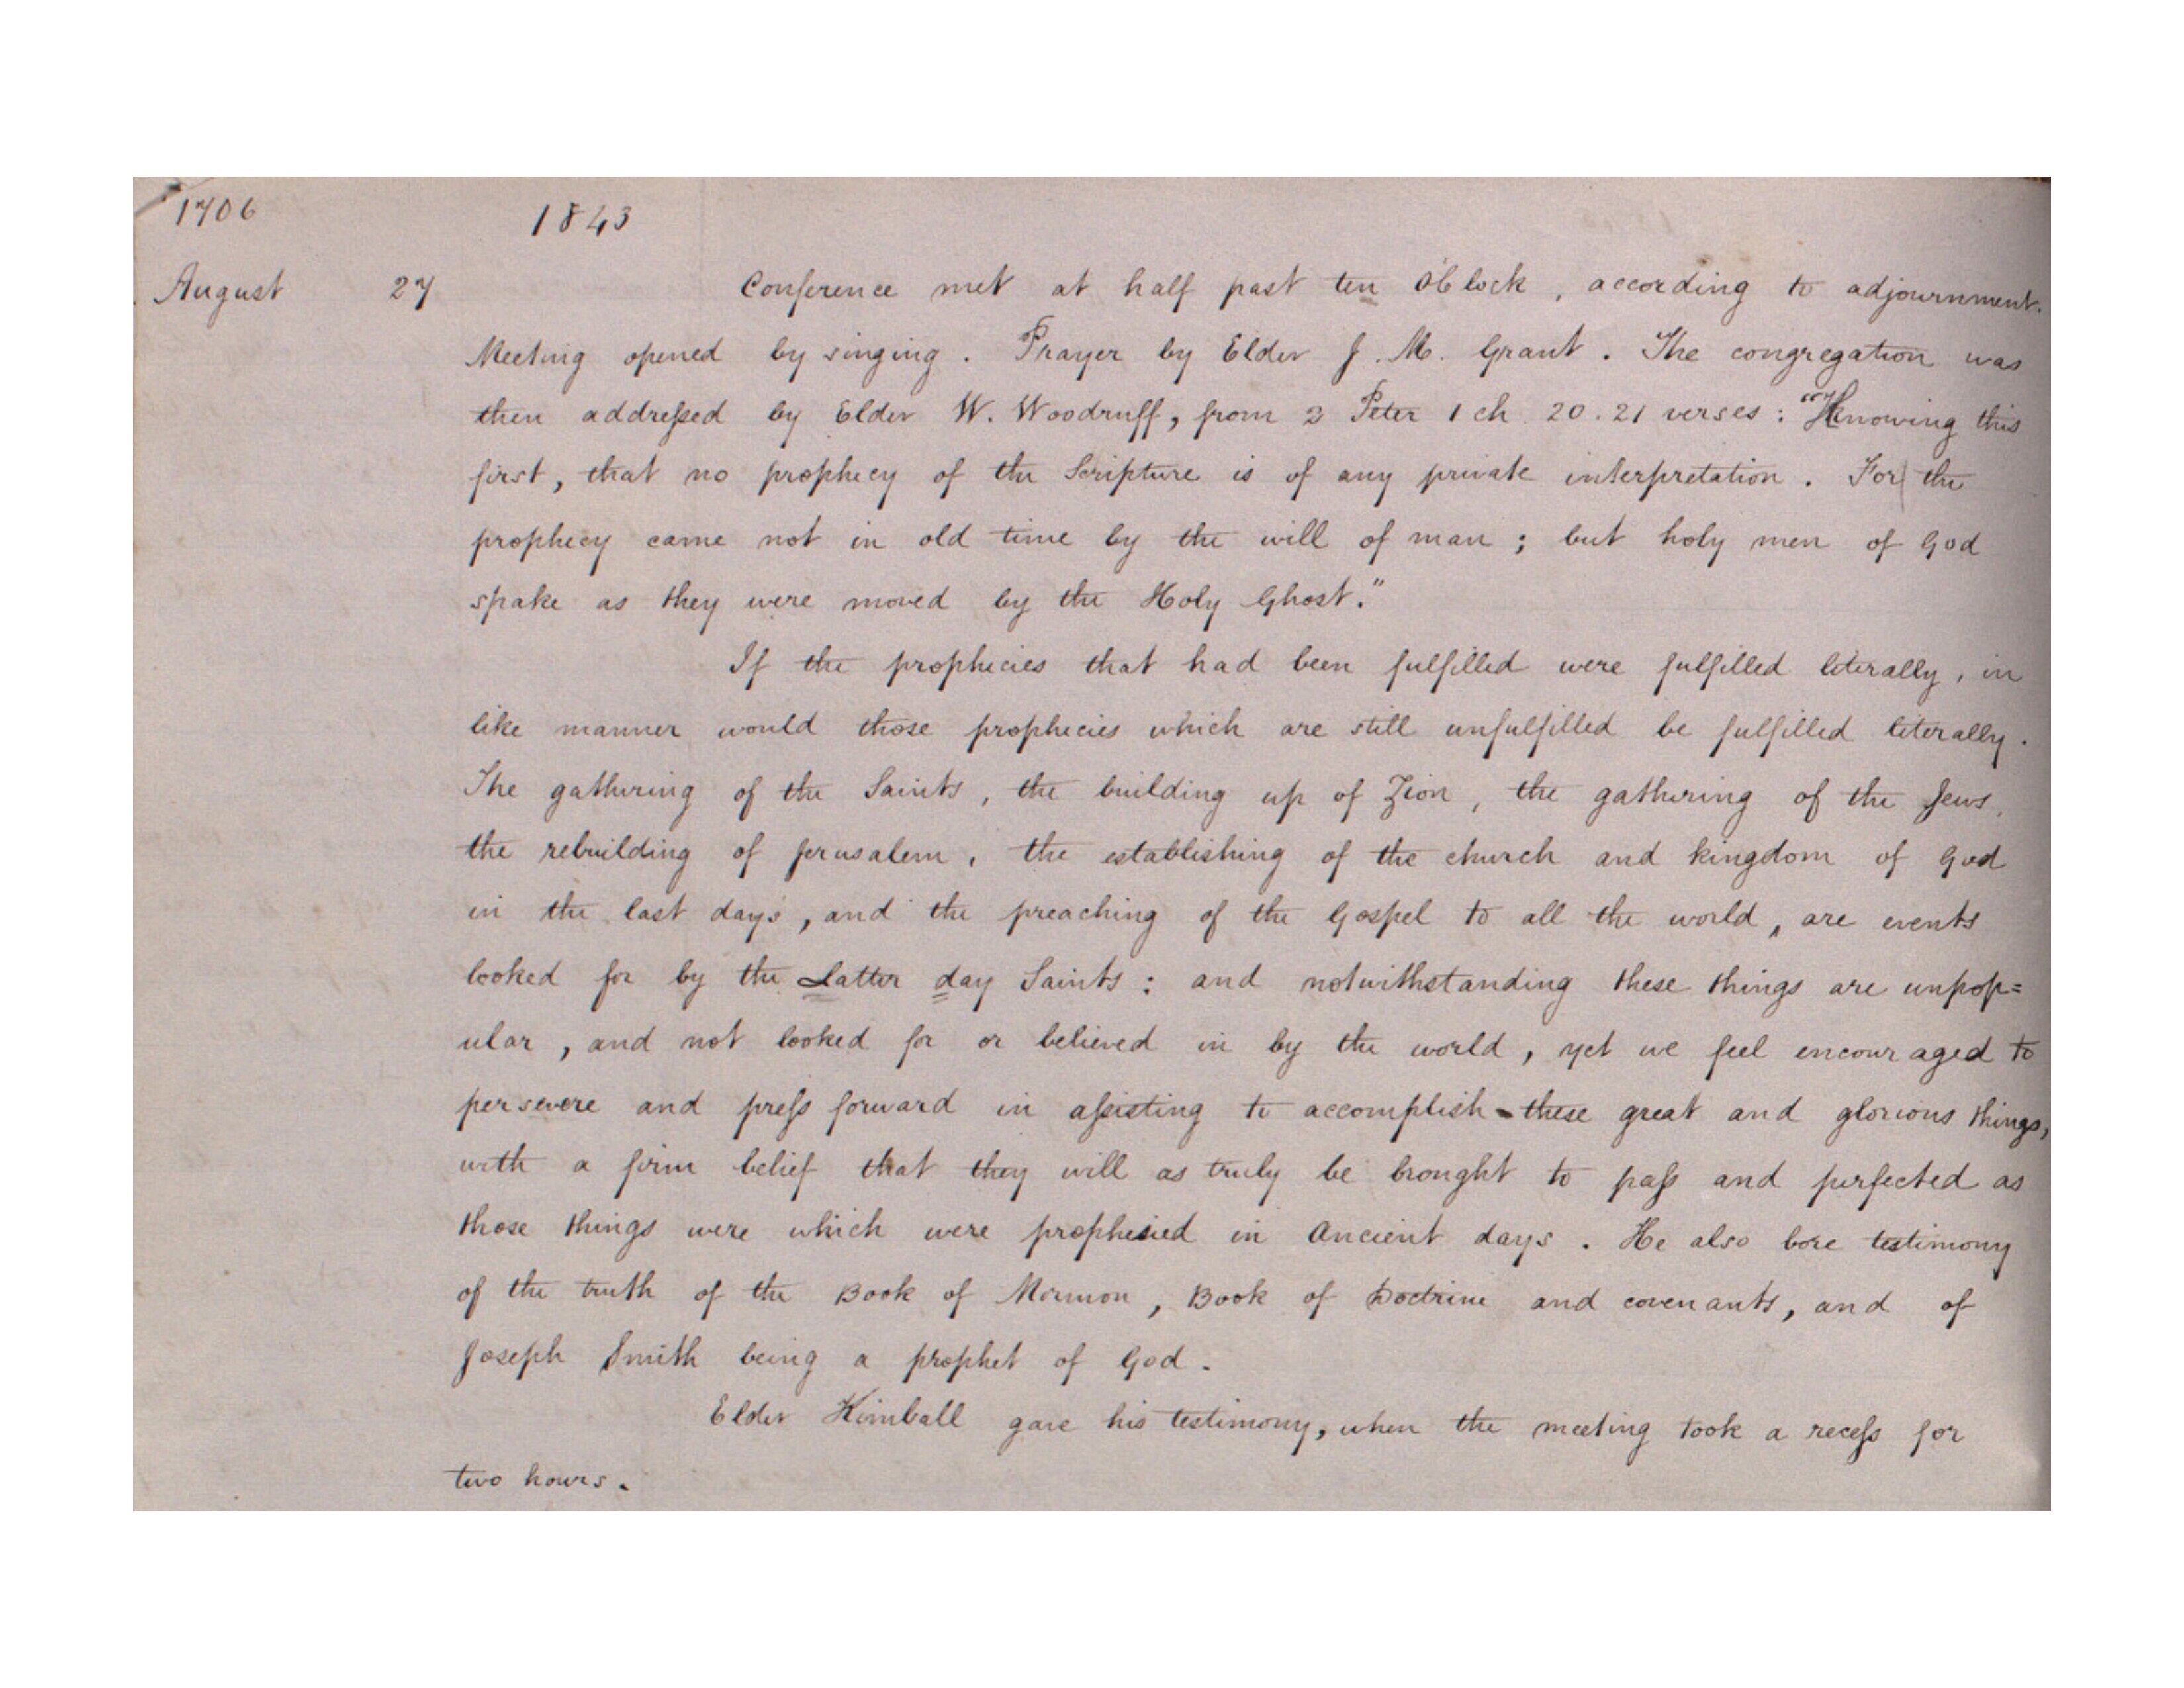 1706 1843
August 27 Conference met at half past ten o'clock, according to adjournment.
Meeting opened by singing. Prayer by Elder J. M. Grant. The congregation was
then addressed by Elder W. Woodruff, from 2 Peter 1 ch. 20. 21 verses: "Knowing this
first, that no prophecy of the Scripture is of any private interpretation. For the
prophecy came not in old time by the will of man; but holy men of God
spake as they were moved by the Holy Ghost."
If the prophecies that had been fulfilled were fulfilled literally, in
like manner would those prophecies which are still unfulfilled be fulfilled literally.
The gathering of the Saints, the building up of Zion, the gathering of the Jews,
the rebuilding of Jerusalem, the establishing of the church and kingdom of God
in the last days, and the preaching of the Gospel to all the world, are events
looked for by the Latter day Saints: and notwithstanding these things are unpop=
ular, and not looked for or believed in by the world, yet we feel encouraged to
persevere and press forward in assisting to accomplish these great and glorious things,
with a firm belief that they will as truly be brought to pass and perfected as
those things were which were prophesied in Ancient days. He also bore testimony
of the truth of the Book of Mormon, Book of Doctrine and covenants, and of
Joseph Smith being a prophet of God.
Elder Kimball gave his testimony, when the meeting took a recess for
two hours.